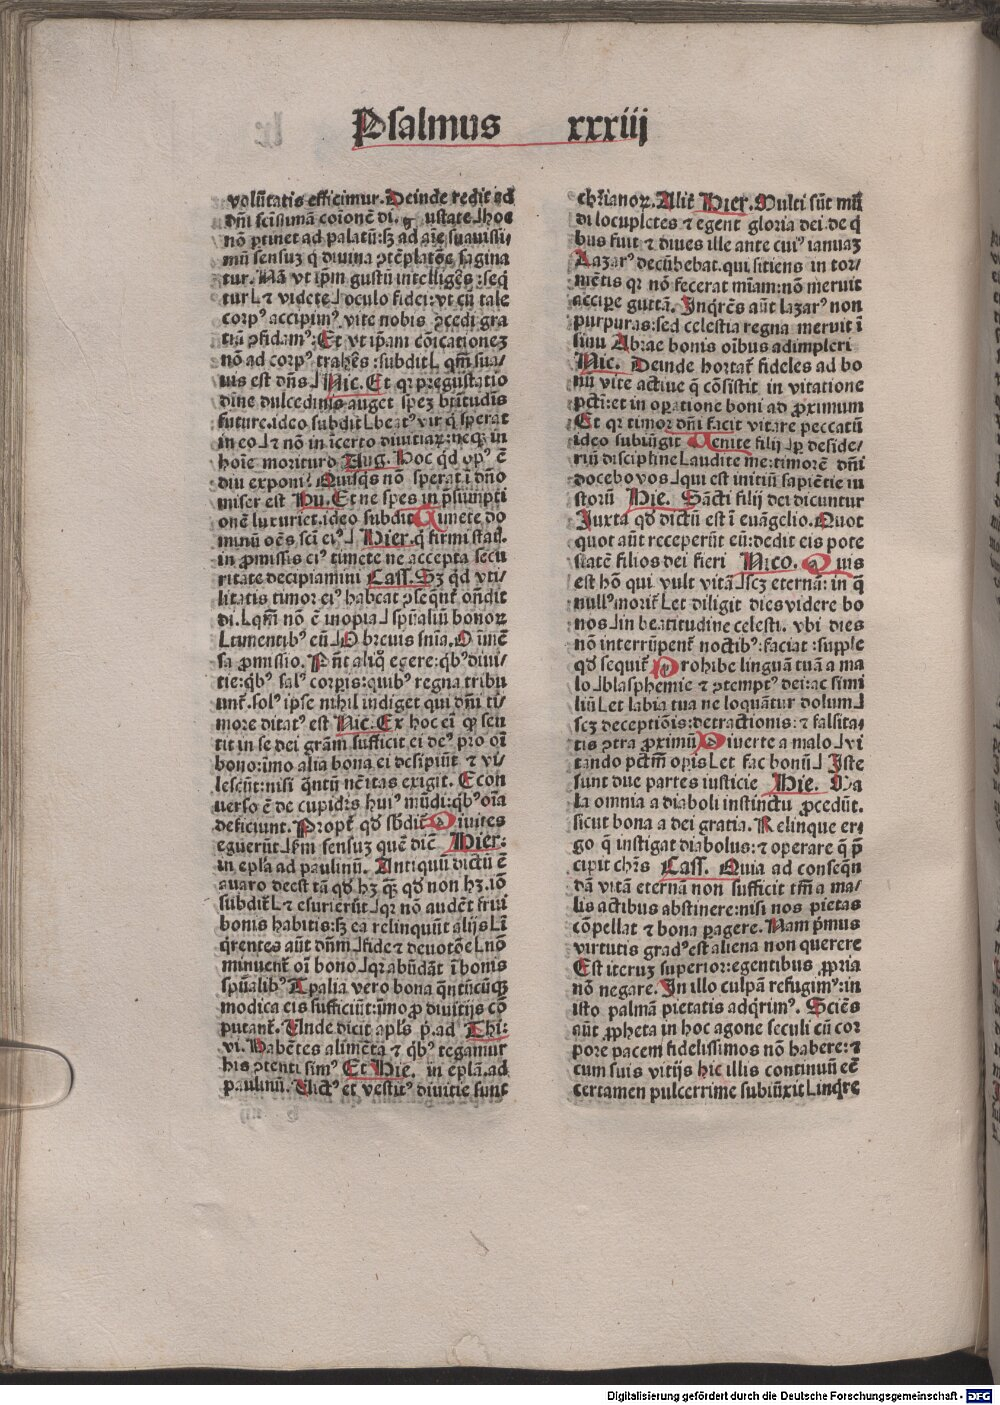 Psalmus xxxiij
volūtatis efficimur. Deinde redit ad
dn̄i sctīsimā cōionē di. ustate ⅃hoc
nō ꝑtinet ad palatū:sꝫ ad aīe suauissi/
mū sensuꝫ q̄ diuina ꝯtēplatōe sagina
tur. Nā vt ip̄m gustū intelligēs:seq̄
tur L⁊ videte⅃oculo fidei:vt cū tale
corpꝰ accipimꝰ vite nobis ꝯcedi gra
tiā ꝯfidamꝰ:Et vt ip̄am cōicationeꝫ
nō ad corpꝰ trahēs:subdit L qm̄ sua/
uis est dn̄s⅃Nic. Et qꝛ pregustatio
dine dulcedinis auget speꝫ btītudīs
future.ideo subdit Lbeatꝰ vir q̄ sperat
in eo⅃⁊ nō in īcerto diuitiaꝝ:neqꝫ in
hoīe morituro Aug. Hoc qd̄ opꝰ ē
diu exponi? Quisq̄s nō sperat ī dn̄o
miser est Hu. Et ne spes in p̄sumpti
onē luxuriet.ideo subdit Timete do
minū oēs scī eiꝰ⅃ Hier. q̄ firmi statꝭ.
in ꝓmissis eiꝰ timete ne accepta secu
ritate decipiamini Cass. Sꝫ qd̄ vti/
litatis timor eiꝰ habeat ꝯseq̄nt̄ on̄dit
di.Lqm̄ nō ē inopia⅃spūaliū bonoꝝ
Ltimentibꝰ eū⅃O breuis sn̄ia. O īmē
sa ꝓmissio. Pn̄t aliq̄ egere:q̄bꝰ diui/
tie:q̄bꝰ salꝰ corpis:quibꝰ regna tribu
unt̄.solꝰ ipse nihil indiget qui dn̄i ti/
more ditatꝰ est Nic. Ex hoc eī qꝫ sen
tit in se dei gr̄am sufficit ei deꝰ pro oī
bono:imo alia bona ei desipiūt ⁊ vi/
lescūt:nisi q̄ntū nc̄itas exigit. Econ
uerso ē de cupidis huiꝰ mūdi:q̄bꝰ oīa
deficiunt. Propt̄ qd̄ sbdit Diuites
eguerūt⅃sm̄ sensuꝫ quē dic̄ Hier:
in epl̄a ad paulinū. Antiquū dictū ē
auaro deest tā qd̄ hꝫ qꝫ qd̄ non hꝫ.iō
subdit L⁊ esurierūt⅃qꝛ nō audēt frui
bonis habitis:sꝫ ea relinquūt alijs Lī
q̄rentes aūt dn̄m⅃fide ⁊ deuotōe Lnō
minuent̄ oī bono⅃qꝛ abūdāt ī bonis
spūalibꝰ Tpalia vero bona q̄ntūcūqꝫ
modica eis sufficiūt:īmo ꝓ diuitijs cō
putant̄. Unde dicit apl̄s p̄.ad Thi:
vi. Habētes alimēta ⁊ q̄bꝰ tegamur
his ꝯtenti simꝰ Et Hie. in epl̄a.ad
paulinū. Victꝰ et vestitꝰ diuitie sunt
chr̄ianoꝝ. Alit̄ Hier. Multi sūt mū
di locupletes ⁊ egent gloria dei.de q̄
bus fuit ⁊ diues ille ante cuiꝰ ianuaꝫ
Lazarꝰ decūbebat.qui sitiens in tor/
mētis qꝛ nō fecerat mīam:nō meruit
accipe guttā. Inq̄rēs aūt lazarꝰ non
purpuras:sed celestia regna meruit ī
sinu Abrae bonis oībus adimpleri
Nic. Deinde hortat̄ fideles ad bo
nū vite actiue q̄ cōsistit in vitatione
pcti:et in oꝑatione boni ad ꝓximum
Et qꝛ timor dn̄i facit vitare peccatū
ideo subiūgit Uenite filij⅃ꝑ deside/
riū discipline Laudite me:timorē dn̄i
docebo vos⅃qui est initiū sapiētie iu
storū Hie. Sācti filij dei dicuntur
Juxta qd̄ dictū est ī euāgelio. Quot
quot aūt receperūt eū:dedit eis pote
statē filios dei fieri Nico. Quis
est hō qui vult vitā⅃scꝫ eternā: in q̄
nullꝰ morit̄ Let diligit dies videre bo
nos⅃in beatitudine celesti. vbi dies
nō interrūpent̄ noctibꝰ:faciat:supple
qd̄ sequit̄ Prohibe linguā tuā a ma
lo⅃blasphemie ⁊ ꝯtemptꝰ dei:ac simi
liū Let labia tua ne loquātur dolum⅃
scꝫ deceptiōis:detractionis:⁊ falsita/
tis ꝯtra ꝓximū Diuerte a malo⅃vi
tando pctm̄ opis Let fac bonū⅃ Iste
sunt due partes iusticie Hie. Ma
la omnia a diaboli instinctu ꝓcedūt.
sicut bona a dei gratia. Relinque er/
go q̄ instigat diabolus:⁊ operare q̄ p̄
cipit chr̄s Cass. Quia ad conseq̄n
dā vitā eternā non sufficit tm̄ a ma/
lis actibus abstinere:nisi nos pietas
cōpellat ⁊ bona ꝑagere. Nam p̄mus
virtutis gradꝰ est aliena non querere
Est iteruꝫ superior:egentibus ꝓpria
nō negare. In illo culpā refugimꝰ:in
isto palmā pietatis adq̄rimꝰ. Sciēs
aūt ꝓpheta in hoc agone seculi cū cor
pore pacem fidelissimos nō habere:⁊
cum suis vitijs hic illis continuū eē
certamen pulcerrime subiūxit Linq̄re
Digitalisierung gefördert durch die Deutsche Forschungsgemeinschaft - DFG